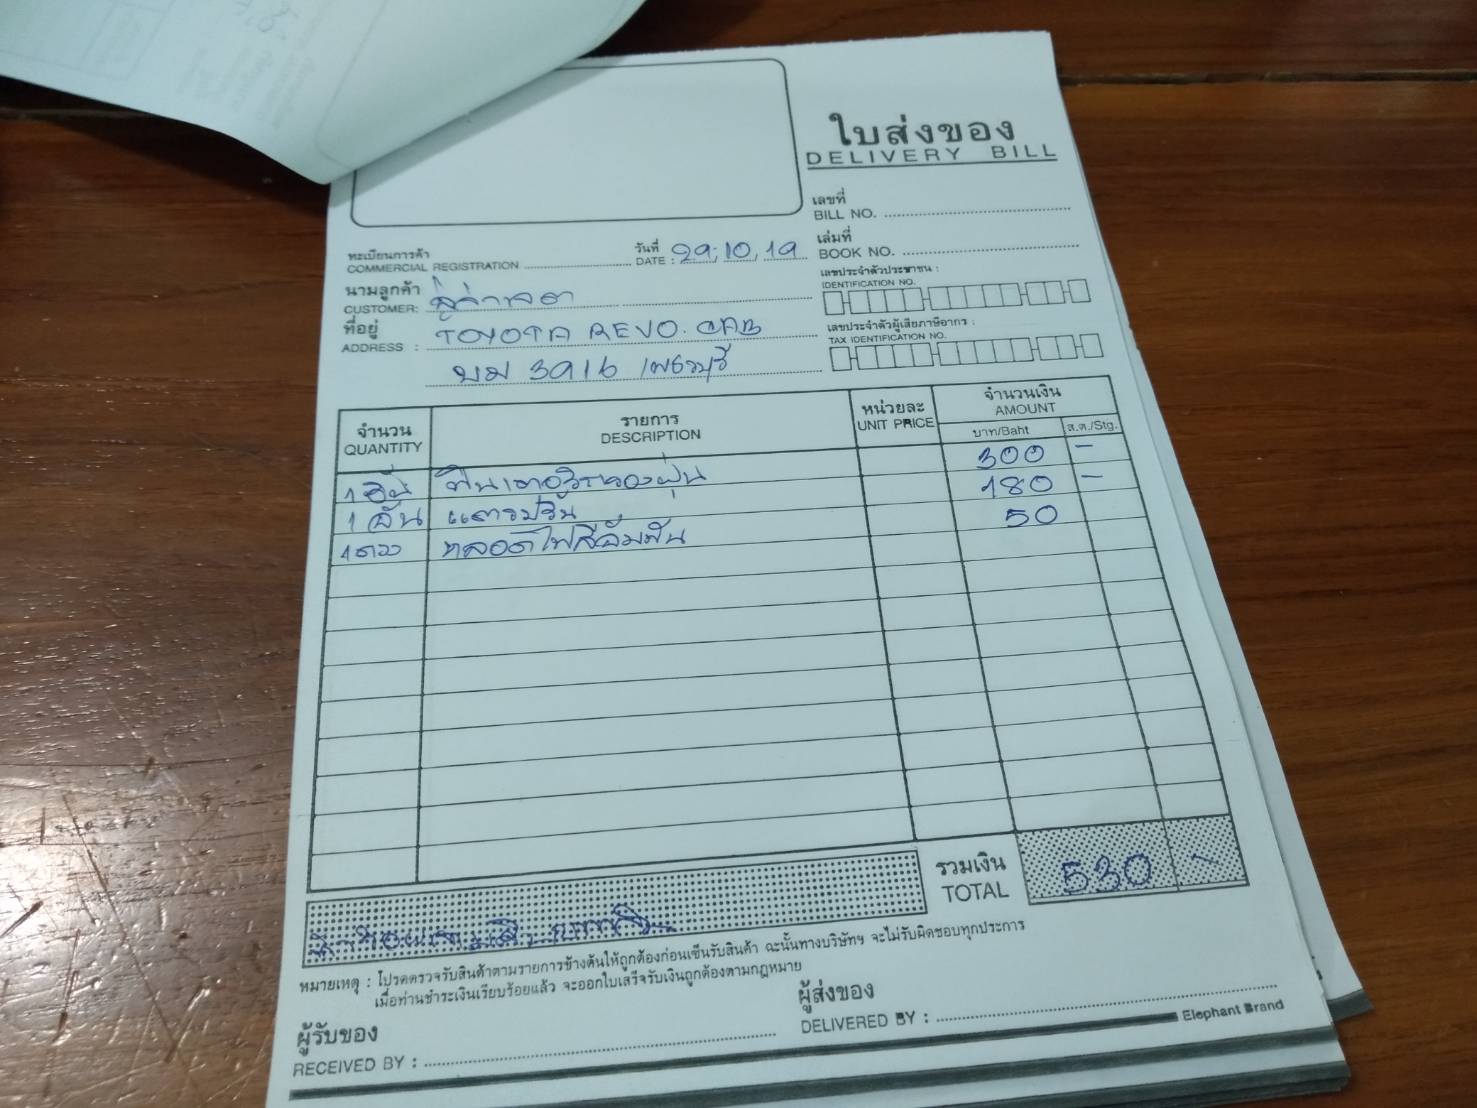 ใบส่งของ
DELIVERY BILL
เลขที่
BILL NO.
เล่มที่
BOOK NO.
ทะเบียนการค้า
COMMERCIAL REGISTRATION
วันที่
DATE : 29,10,19
เลขประจำตัวประชาชน :
IDENTIFICATION NO.
นามลูกค้า
CUSTOMER:
ที่อยู่
ADDRESS : TOYOTA REVO. CAB
เลขประจำตัวผู้เสียภาษีอากร :
TAX IDENTIFICATION NO.
บม 3916 เพชรบุรี
จำนวน
QUANTITY
รายการ
DESCRIPTION
หน่วยละ
UNIT PRICE
จำนวนเงิน
AMOUNT
บาท/Baht
ส.ต./Stg.
300 -
1 อัน 180 -
1 ดวง หลอดไฟสีส้ม 50
รวมเงิน
TOTAL
530 -
หมายเหตุ : โปรดตรวจรับสินค้าตามรายการข้างต้นให้ถูกต้องก่อนเซ็นรับสินค้า ฉะนั้นทางบริษัทฯ จะไม่รับผิดชอบทุกประการ
เมื่อท่านชำระเงินเรียบร้อยแล้ว จะออกใบเสร็จรับเงินถูกต้องตามกฎหมาย
ผู้รับของ
RECEIVED BY :
ผู้ส่งของ
DELIVERED BY :
Elephant Brand